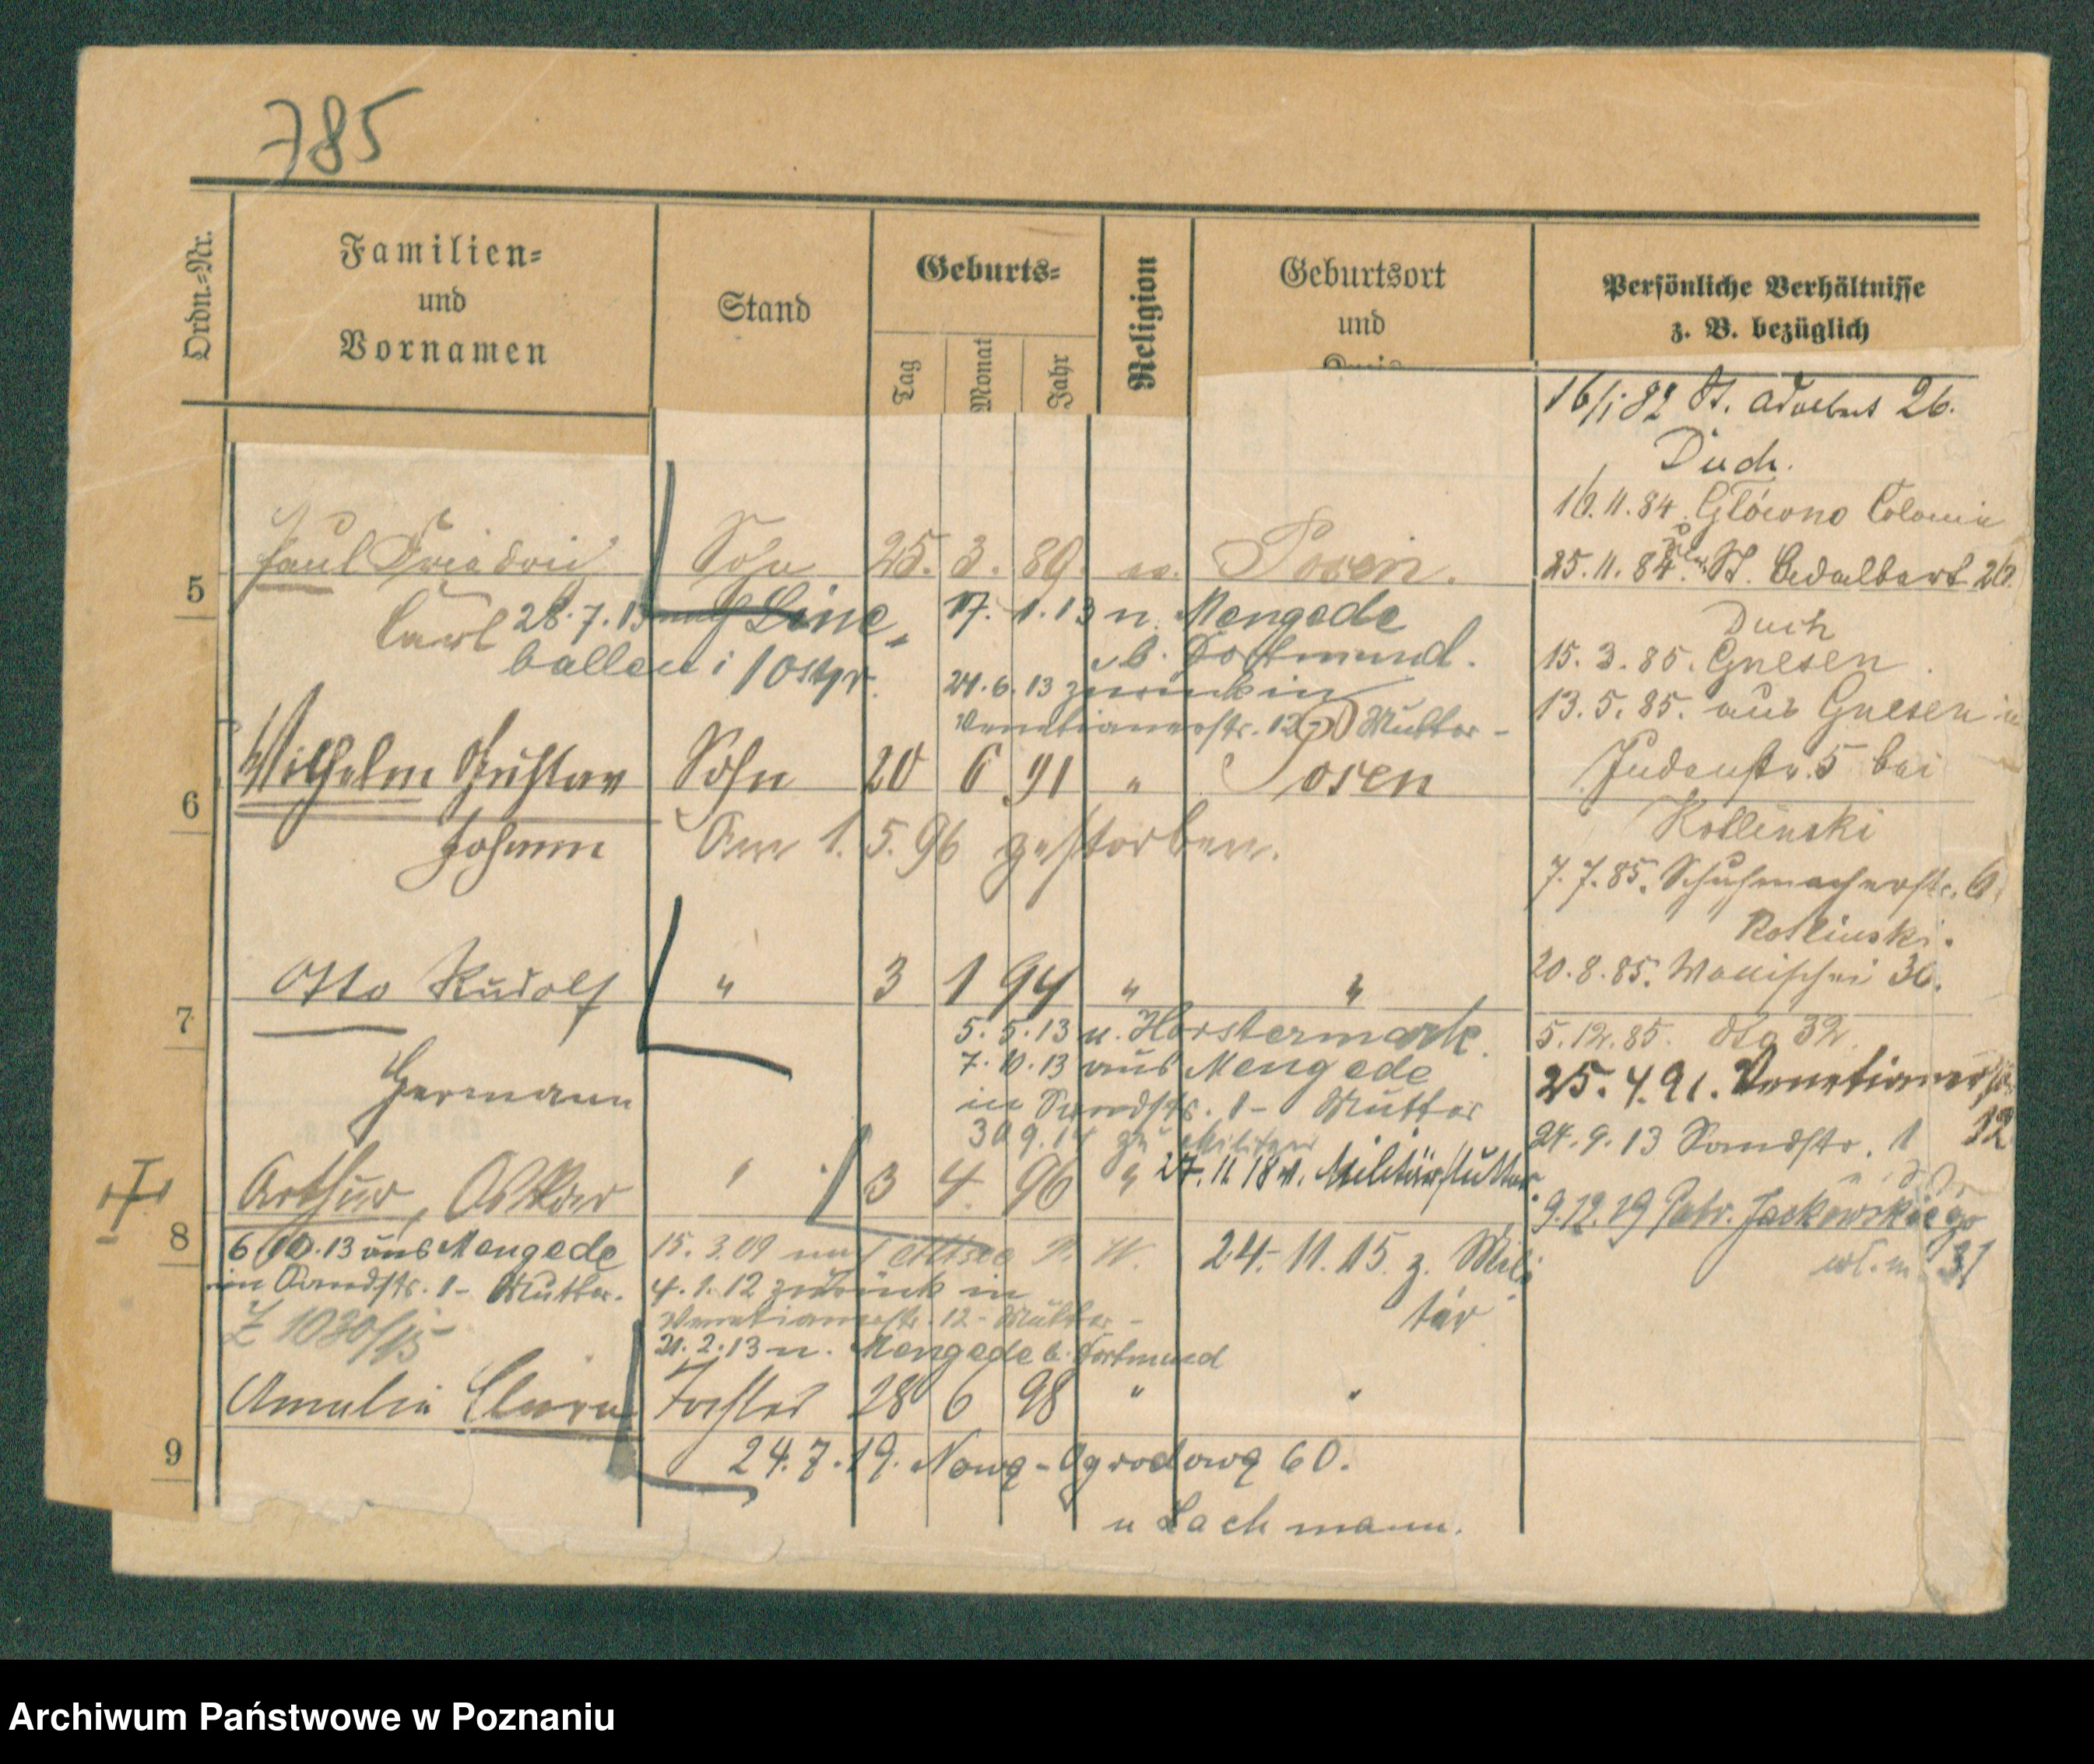 785
Ordn.-Nr.
Familien-
und
Vornamen
Stand
Geburts-
Tag
Monat
Jahr
Religion
Geburtsort
und
Persönliche Verhältnisse
z. B. bezüglich
16/1.82 St. Adalbert 26.
Duch.
10.11.84. Główno Colonie
25.11.84. St. Adalbert 26.
Duch
15.3.85. Gnesen.
13.5.85. aus Gnesen in
Judenstr. 5 bei
Kotlinski
7.7.85. Schuhmacherstr. 6
Kotlinski.
20.8.85. Wallischei 36.
5.12.85. dto 32.
25.4.91. Venetianerstr.
12
24.9.13 Sandstr. 1
9.12.19 Patr. Jackowskiego
31
5
Paul Friedrich
Sohn 25. 3. 89. ev. Posen.
Carl
28.7.13
ballen i / Ostpr.
17. 1. 13 n. Mengede
b. Dortmund.
24.6.13 zurück in
Venetianerstr. 12 Mutter -
6
Wilhelm Gustav Sohn 20 6 91 " Posen
Johann
Am 1. 5. 96 gestorben.
7
Otto Rudolf " 3 1 94 " "
Hermann
5.5.13 n. Horstermark.
7.10.13 aus Mengede
in Sandstr. 1 - Mutter
zu Militär
27.11.18 v. Militär
8
Arthur, Oskar " 3 4. 96 "
6.10.13 aus Mengede
in Sandstr. 1 - Mutter.
Z 1030/15
15.3.09 nach
4.1.12 zurück in
Venetianerstr. 12 - Mutter -
21.2.13 n. Mengede b. Dortmund
24.11.15. z. Mili
tär
9
Amalie Clara Tochter 28 6 98 " "
24.7.19. Nową-Ogrodową 60.
u Lachmann.
Archiwum Państwowe w Poznaniu